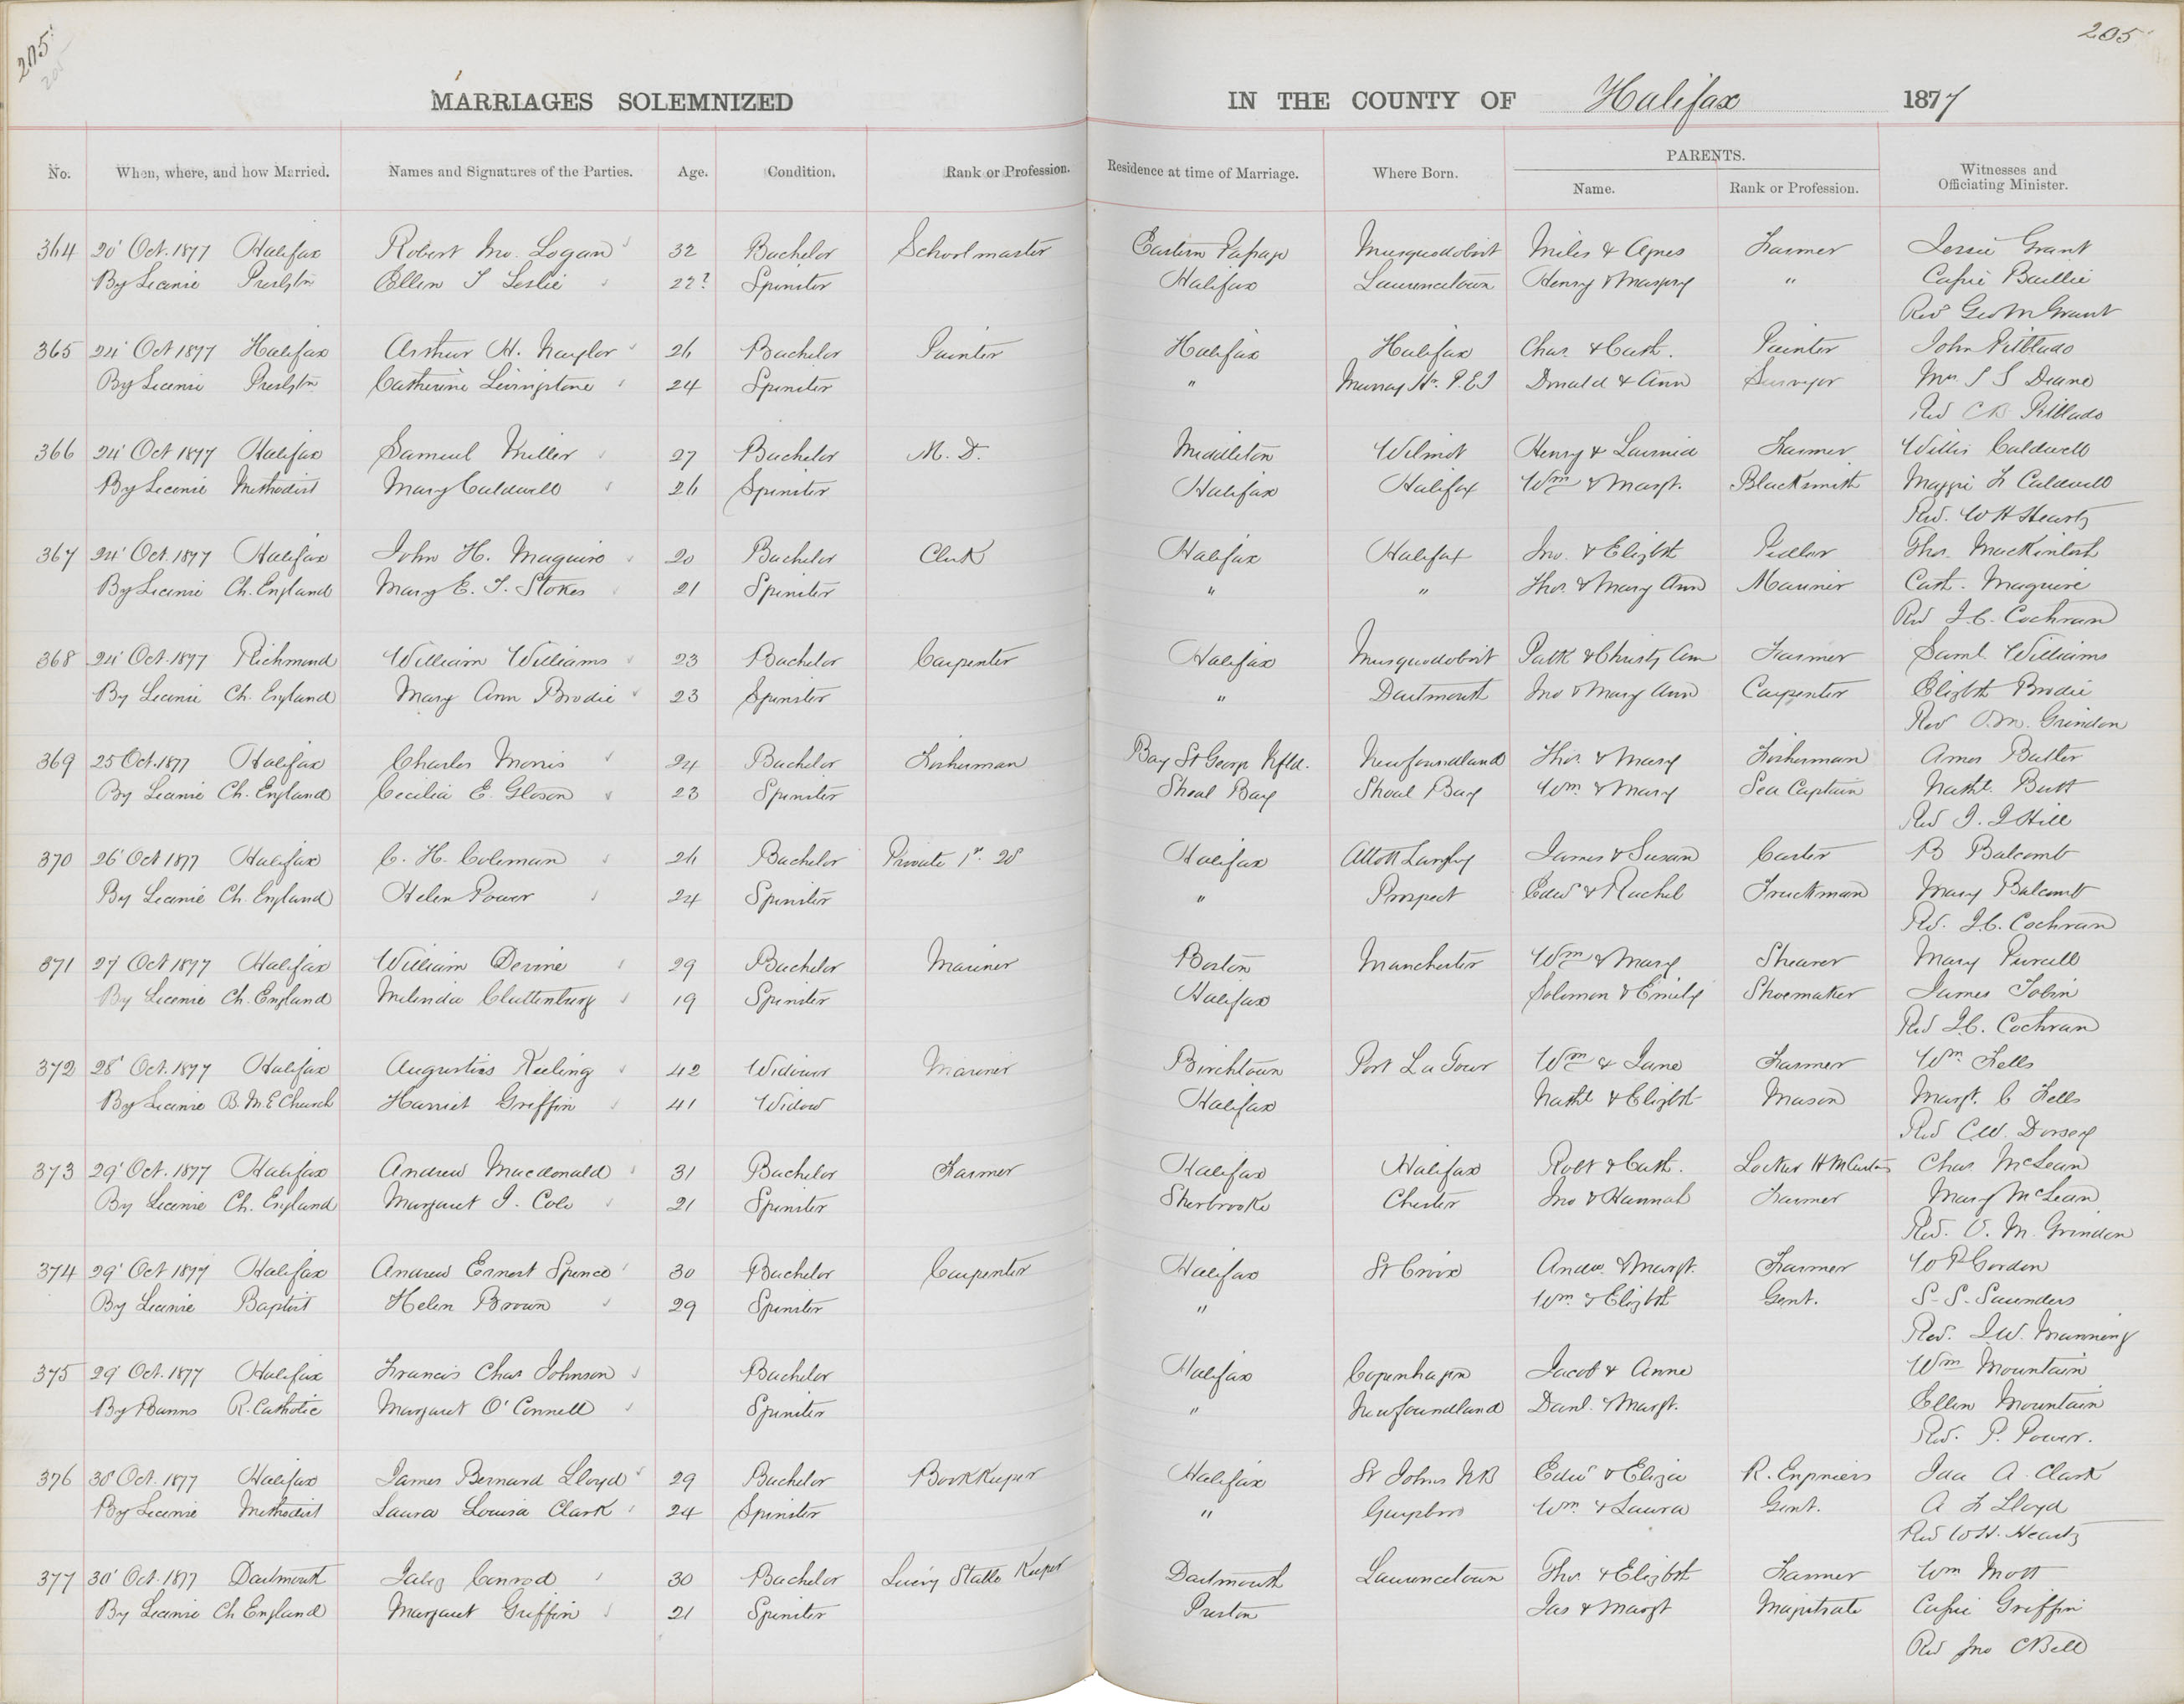 205
205
MARRIAGES SOLEMNIZED IN THE COUNTY OF Halifax 1877
No. When, where, and how Married. Names and Signatures of the Parties. Age. Condition. Rank or Profession. Residence at time of Marriage. Where Born. PARENTS. Name. Rank or Profession. Witnesses and Officiating Minister.
364 20' Oct. 1877 Halifax Robert Logan 32 Bachelor Schoolmaster Eastern Musquodoboit Miles & Agnes Farmer Jessie Grant
By Licence Presbytn Ellen Leslie 22? Spinster Halifax Lawrencetown Henry & " Cassie Baillie
Rev Geo M Grant
365 24' Oct 1877 Halifax Arthur H. Naylor 26 Bachelor Painter Halifax Halifax Chas. & Cath. Painter John Pitblado
By Licence Presbytn Catherine Livingstone 24 Spinster " Murray Hr. P.E.I Donald & Ann Surveyor Mrs Deane
Rev C B Pitblado
366 24' Oct 1877 Halifax Samuel Miller 27 Bachelor M. D. Middleton Wilmot Henry & Farmer Willis Caldwell
By Licence Methodist Mary Caldwell 26 Spinster Halifax Halifax Wm & Margt. Blacksmith Maggie Caldwell
Rev. W H Heartz
367 24' Oct. 1877 Halifax John H. Maguire 20 Bachelor Clerk Halifax Halifax Jno. & Elizbth Pedlar Thos. MacKintosh
By Licence Ch. England Mary E. Stokes 21 Spinster " " Thos. & Mary Ann Mariner Cath. Maguire
Rev J.C. Cochran
368 24' Oct. 1877 Richmond William Williams 23 Bachelor Carpenter Halifax Musquodoboit Patk & Christy Ann Farmer Saml. Williams
By Licence Ch. England Mary Ann Brodie 23 Spinster " Dartmouth Jno & Mary Ann Carpenter Elizbth Brodie
Rev O.M. Grindon
369 25 Oct. 1877 Halifax Charles Morris 24 Bachelor Fisherman Bay St George Nfld. Newfoundland Thos. & Mary Fisherman Amos Butler
By Licence Ch. England Cecilia E. Gloson 23 Spinster Shoal Bay Shoal Bay Wm. & Mary Sea Captain Nathl. Butt
Rev Hill
370 26' Oct 1877 Halifax C. H. Coleman 26 Bachelor Private 1st. 20' Halifax James & Susan Carter B Balcomb
By Licence Ch. England Helen Power 24 Spinster " Prospect Edwd & Rachel Truckman Mary Balcomb
Rev. J.C. Cochran
371 27' Oct 1877 Halifax William Devine 29 Bachelor Mariner Boston Manchester Wm & Mary Shearer Mary Purcell
By Licence Ch. England Melinda Clattenburg 19 Spinster Halifax Solomon & Emily Shoemaker James Tobin
Rev J.C. Cochran
372 28' Oct. 1877 Halifax Augustus Keeling 42 Widower Mariner Birchtown Port La Tour Wm & Jane Farmer Wm. Fells
By Licence B.M.E Church Harriet Griffin 41 Widow Halifax Nathl & Elizbth Mason Margt. C Fells
Rev C.W. Dorsey
373 29' Oct. 1877 Halifax Andrew Macdonald 31 Bachelor Farmer Halifax Halifax Robt & Cath. Locker H M Customs Chas McLean
By Licence Ch. England Margaret J. Cole 21 Spinster Sherbrooke Chester Jno & Hannah Farmer Mary McLean
Rev. O. M. Grindon
374 29' Oct 1877 Halifax Andrew Ernest Spence 30 Bachelor Carpenter Halifax St Croix Andw. & Margt. Farmer W P Gordon
By Licence Baptist Helen Brown 29 Spinster " Wm. & Elizbth Gent. S. S. Saunders
Rev. J.W. Manning
375 29' Oct. 1877 Halifax Francis Chas Johnson Bachelor Halifax Copenhagen Jacob & Anne Wm Mountain
By Banns R. Catholic Margaret O'Connell Spinster " Newfoundland Danl. & Margt. Ellen Mountain
Rev. P. Power.
376 30' Oct. 1877 Halifax James Bernard Lloyd 29 Bachelor BookKeeper Halifax St Johns NB Edwd & Eliza R. Engineers Ida A. Clark
By Licence Methodist Laura Louisa Clark 24 Spinster " Guysboro Wm. & Laura Gent. A Lloyd
Rev W.H. Heartz
377 30' Oct. 1877 Dartmouth Jabez Conrod 30 Bachelor Livery Stable Keeper Dartmouth Lawrencetown Thos. & Elizbth Farmer Wm Mott
By Licence Ch England Margaret Griffin 21 Spinster Preston Jas & Margt Magistrate Cassie Griffin
Rev Jno C Bell